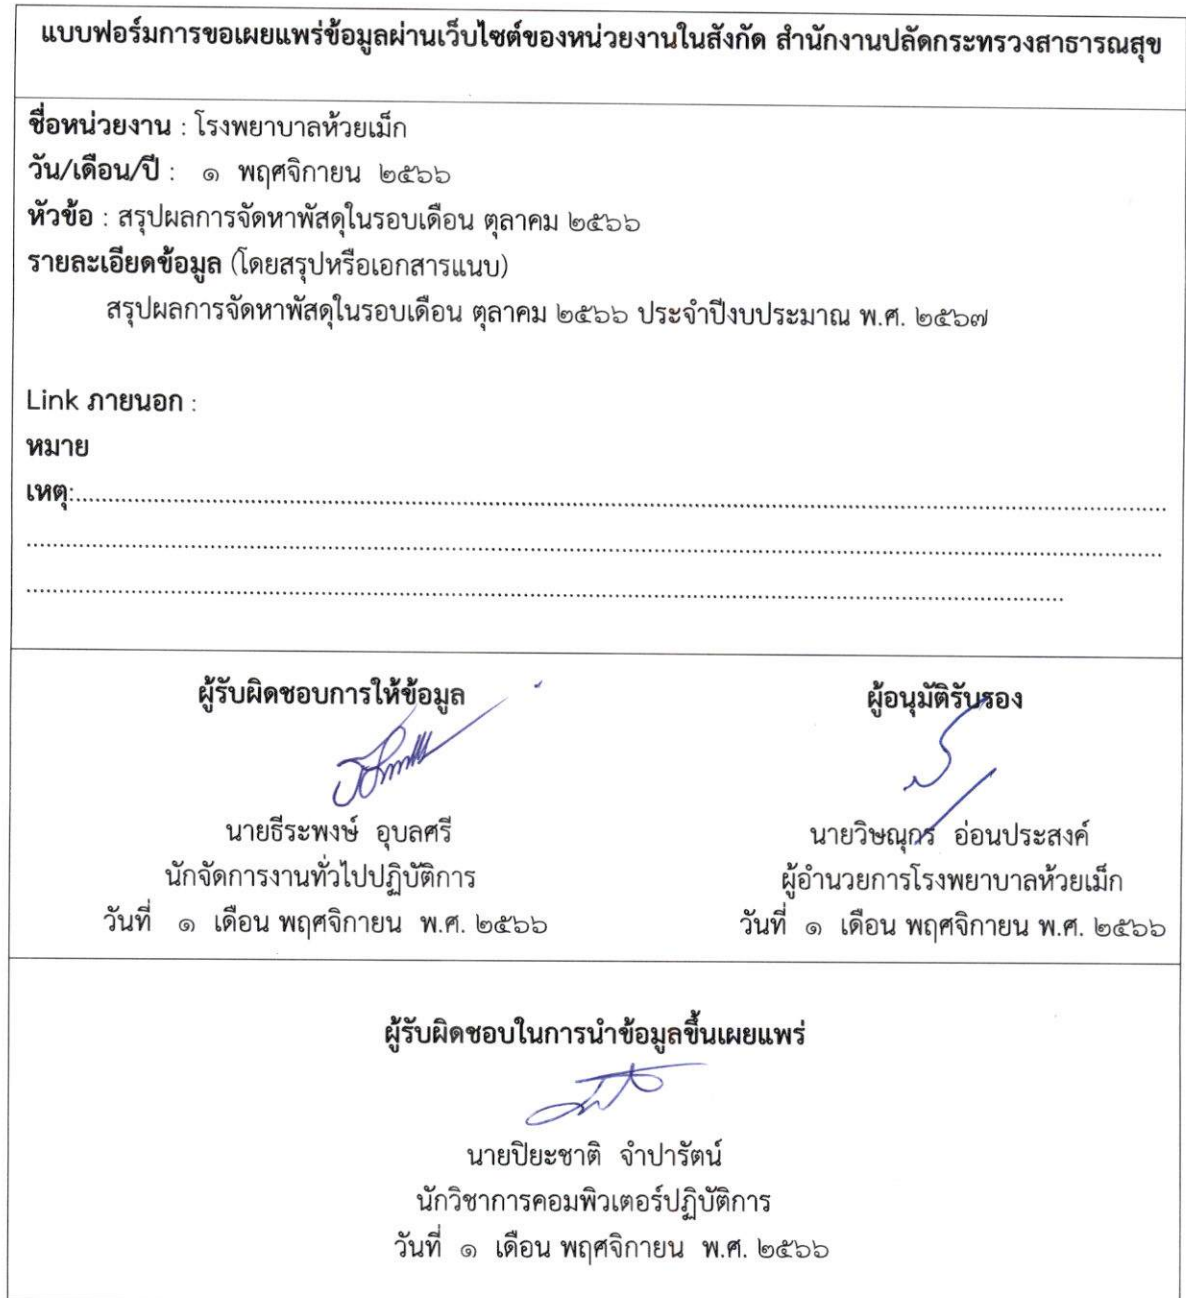 แบบฟอร์มการขอเผยแพร่ข้อมูลผ่านเว็บไซต์ของหน่วยงานในสังกัด สำนักงานปลัดกระทรวงสาธารณสุข
ชื่อหน่วยงาน : โรงพยาบาลห้วยเม็ก
วัน/เดือน/ปี : ๑ พฤศจิกายน ๒๕๖๖
หัวข้อ : สรุปผลการจัดหาพัสดุในรอบเดือน ตุลาคม ๒๕๖๖
รายละเอียดข้อมูล (โดยสรุปหรือเอกสารแนบ)
สรุปผลการจัดหาพัสดุในรอบเดือน ตุลาคม ๒๕๖๖ ประจำปีงบประมาณ พ.ศ. ๒๕๖๗
Link ภายนอก :
หมาย
เหตุ:..........................................................................................
..........................................................................................
..........................................................................................
ผู้รับผิดชอบการให้ข้อมูล
นายธีระพงษ์ อุบลศรี
นักจัดการงานทั่วไปปฏิบัติการ
วันที่ ๑ เดือน พฤศจิกายน พ.ศ. ๒๕๖๖
ผู้อนุมัติรับรอง
นายวิษณุกร อ่อนประสงค์
ผู้อำนวยการโรงพยาบาลห้วยเม็ก
วันที่ ๑ เดือน พฤศจิกายน พ.ศ. ๒๕๖๖
ผู้รับผิดชอบในการนำข้อมูลขึ้นเผยแพร่
นายปิยะชาติ จำปารัตน์
นักวิชาการคอมพิวเตอร์ปฏิบัติการ
วันที่ ๑ เดือน พฤศจิกายน พ.ศ. ๒๕๖๖